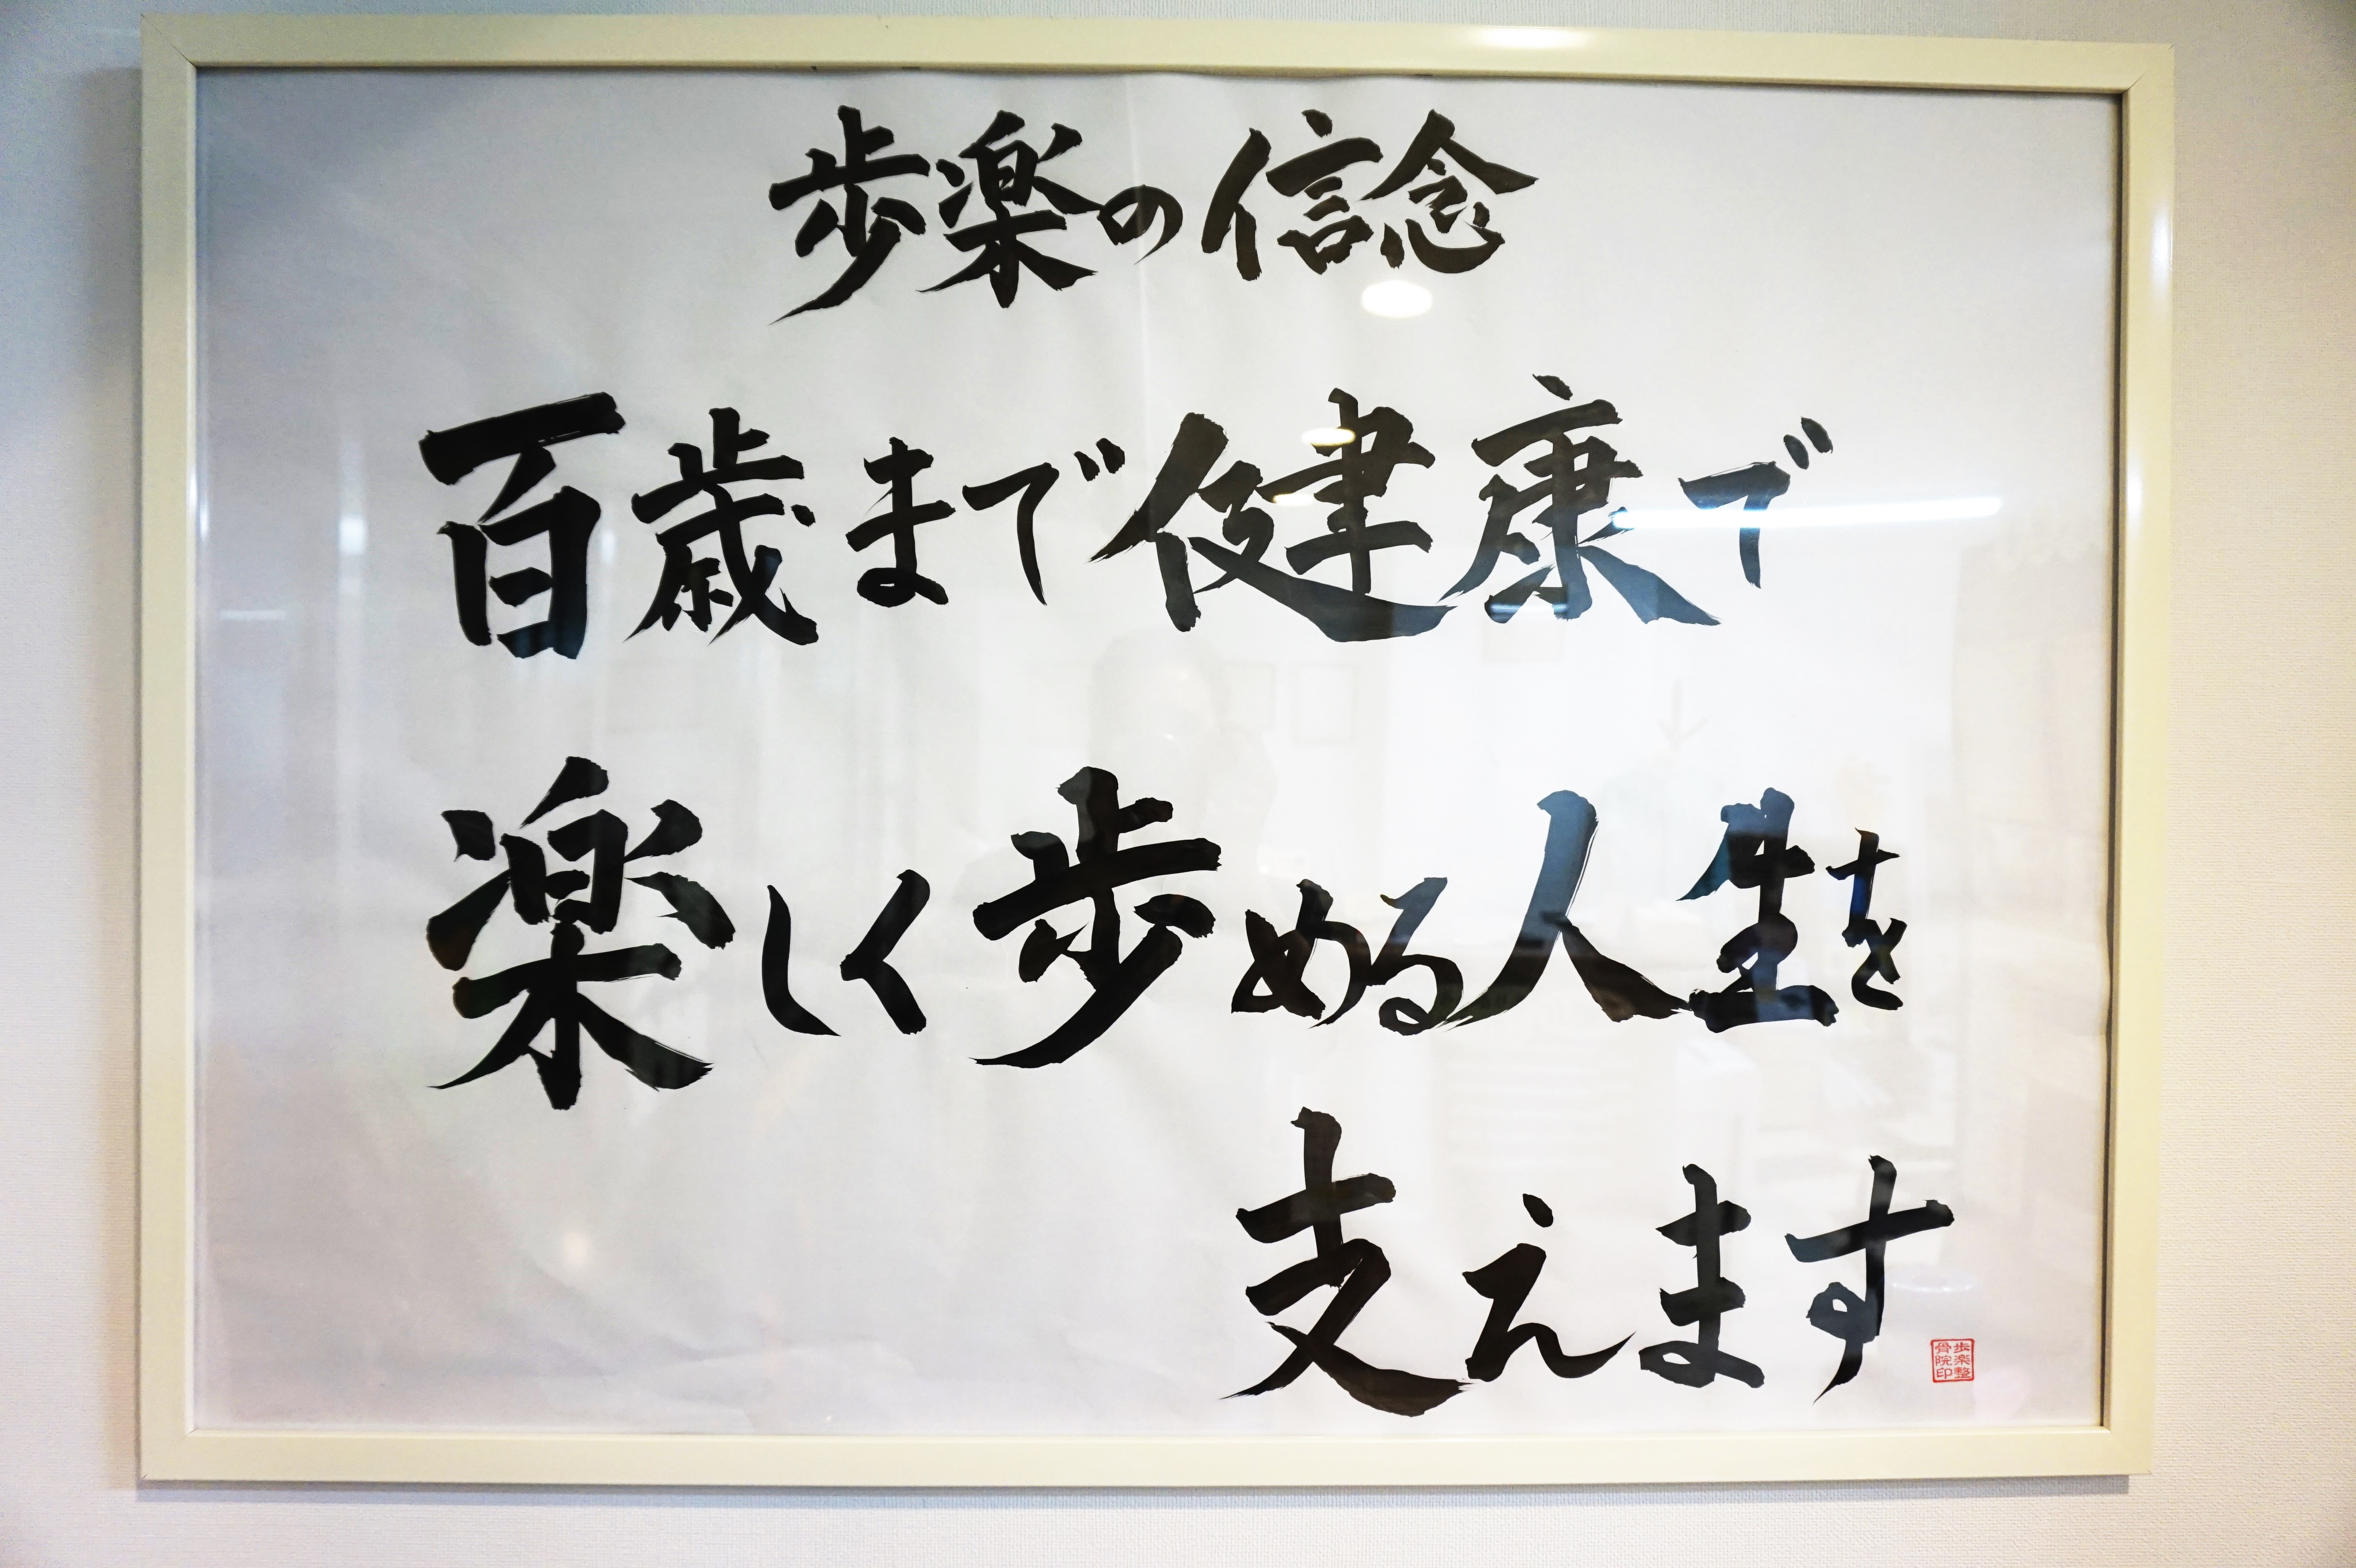 歩楽の信念
百歳まで健康で
楽しく歩める人生を
支えます
歩楽整
骨院印